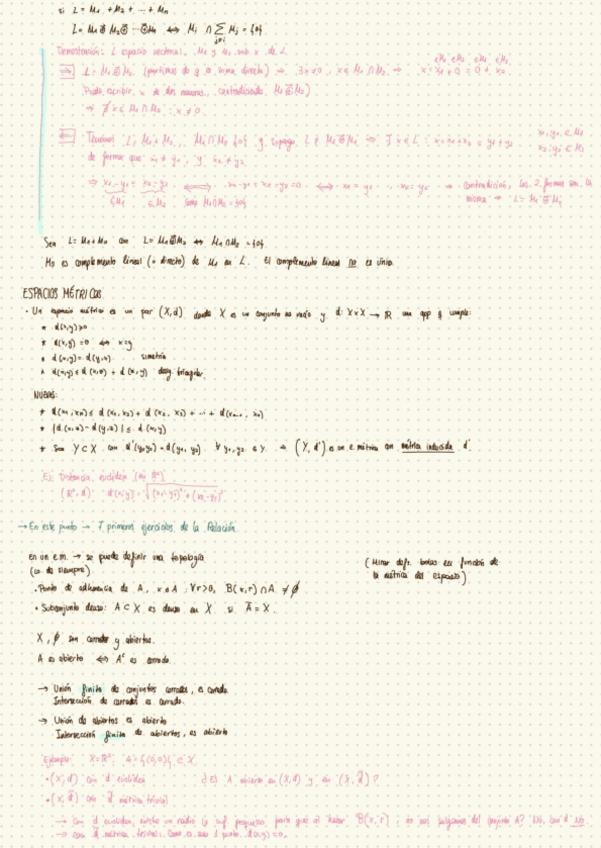 si L = M₁ + M₂ + ... + Mₙ
L = M₁ ⊕ M₂ ⊕ ... ⊕ Mₙ ⟺ Mᵢ ∩ ∑ Mⱼ = {0}
j≠i
Demostración: L espacio vectorial, M₁ y M₂ sub de L
⇒ L = M₁ ⊕ M₂
Puedo escribir x de dos maneras, contradiciendo M₁ ⊕ M₂)
⇒ ∄ x ∈ M₁ ∩ M₂ : x ≠ 0
⇐ Tenemos L = M₁ + M₂, M₁ ∩ M₂ = {0} y supongo L ≠ M₁ ⊕ M₂ ⇒ ∃ x ∈ L : x = x₁ + x₂ = y₁ + y₂
de forma que x₁ ≠ y₁ y x₂ ≠ y₂
contradicción, las 2 formas son la
misma → L = M₁ ⊕ M₂
Sea L = M₁ + M₂ con L = M₁ ⊕ M₂ ⟺ M₁ ∩ M₂ = {0}
M₂ es complemento lineal (o directo) de M₁ en L. El complemento lineal no es único.
ESPACIOS MÉTRICOS
• Un espacio métrico es un par (X, d) donde X es un conjunto no vacío y d: X×X → ℝ una app q cumple:
* d(x,y) ≥ 0
* d(x,y) = 0 ⟺ x = y
* d(x,y) = d(y,x) simetría
* d(x,y) ≤ d(x,z) + d(z,y) desg. triangular
* d(x₁,xₙ) ≤ d(x₁,x₂) + d(x₂,x₃) + ... + d(xₙ₋₁,xₙ)
* |d(x,z) - d(y,z)| ≤ d(x,y)
* Sea Y ⊂ X con d'(y₁,y₂) = d(y₁,y₂) ∀ y₁,y₂ ∈ Y ⇒ (Y, d') es un e. métrico con métrica inducida d'.
Ej: Distancia euclídea (en ℝ²)
(ℝ², d) d(x,y) = √((x₁-y₁)² + (x₂-y₂)²)
→ En este punto → 7 primeros ejercicios de la Relación
en un e.m. → se puede definir una topología
(lo de siempre)
(Mirar defs. bolas en función de
la métrica del espacio)
• Punto de adherencia de A, x ∈ A : ∀r>0, B(x,r) ∩ A ≠ ∅
• Subconjunto denso: A ⊂ X es denso en X si Ā = X.
X, ∅ son cerrados y abiertos.
A es abierto ⟺ Aᶜ es cerrado.
→ Unión finita de conjuntos cerrados, es cerrado
Intersección de cerrados es cerrado.
→ Unión de abiertos es abierto
Intersección finita de abiertos, es abierto
Ejemplo: X = ℝ², A = {(0,0)} ⊂ X
• (X, d) con d euclídea ¿Es A abierto en (X,d) y en (X,d̃)?
• (X, d̃) con d̃ métrica trivial
→ con d euclídea, existe un radio lo suf. pequeño para que al hacer B(x,r) no nos salgamos del conjunto A? No, con d No
→ con d̃ métrica trivial, como A solo 1 punto d(x,y) = 0,